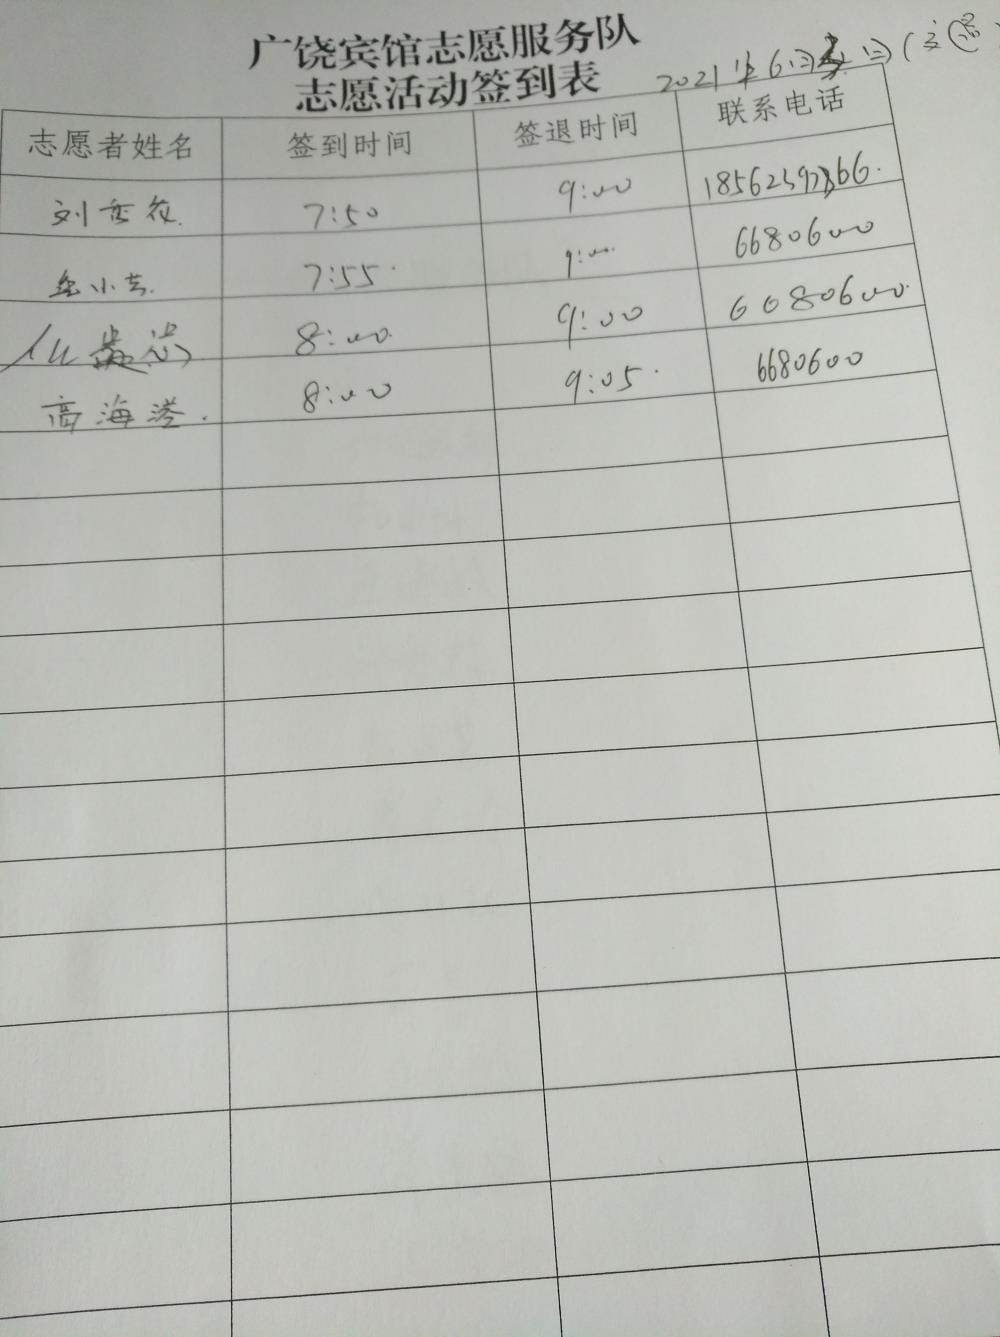 广饶宾馆志愿服务队
志愿活动签到表
2021年6月 日(
志愿者姓名 签到时间 签退时间 联系电话
刘 7:50 9:00
小芸 7:55 9:00 6680600
8:00 9:00 6080600
高海滢 8:00 9:05 6680600